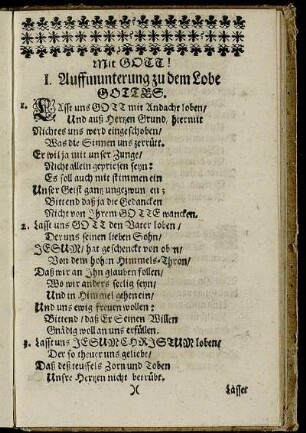 Mit GOTT!
I. Auffmunterung zu dem Lobe
GOTTES.
1. LAsst uns GOTT mit Andacht loben/
Und auß Hertzen Grund, hiermit
Nichtes uns werd eingeschoben/
Was die Sinnen uns zerrütt.
Er wil ja mit unser Zunge/
Nicht allein gepriesen seyn:
Es soll auch mit stimmen ein
Unser Geist gantz ungezwungen;
Bittend daß ja die Gedancken
Nicht von Ihrem GOTTE wancken.
2. Lasst uns GOTT den Vater loben/
Der uns seinen lieben Sohn/
JESUM/ hat geschenckt von oben/
Von dem hohen Himmels-Thron/
Daß wir an Ihn glauben sollen/
Wo wir anders seelig seyn/
Und in Himmel gehen ein/
Und uns ewig freuen wollen:
Bittend/ daß Er Seinen Willen
Gnädig woll an uns erfüllen.
3. Lasset uns JESUM CHRISTUM loben/
Der so theuer uns geliebt/
Daß deß teuffels Zorn und Toben
Unsre Hertzen nicht betrübt.
)( Lasset